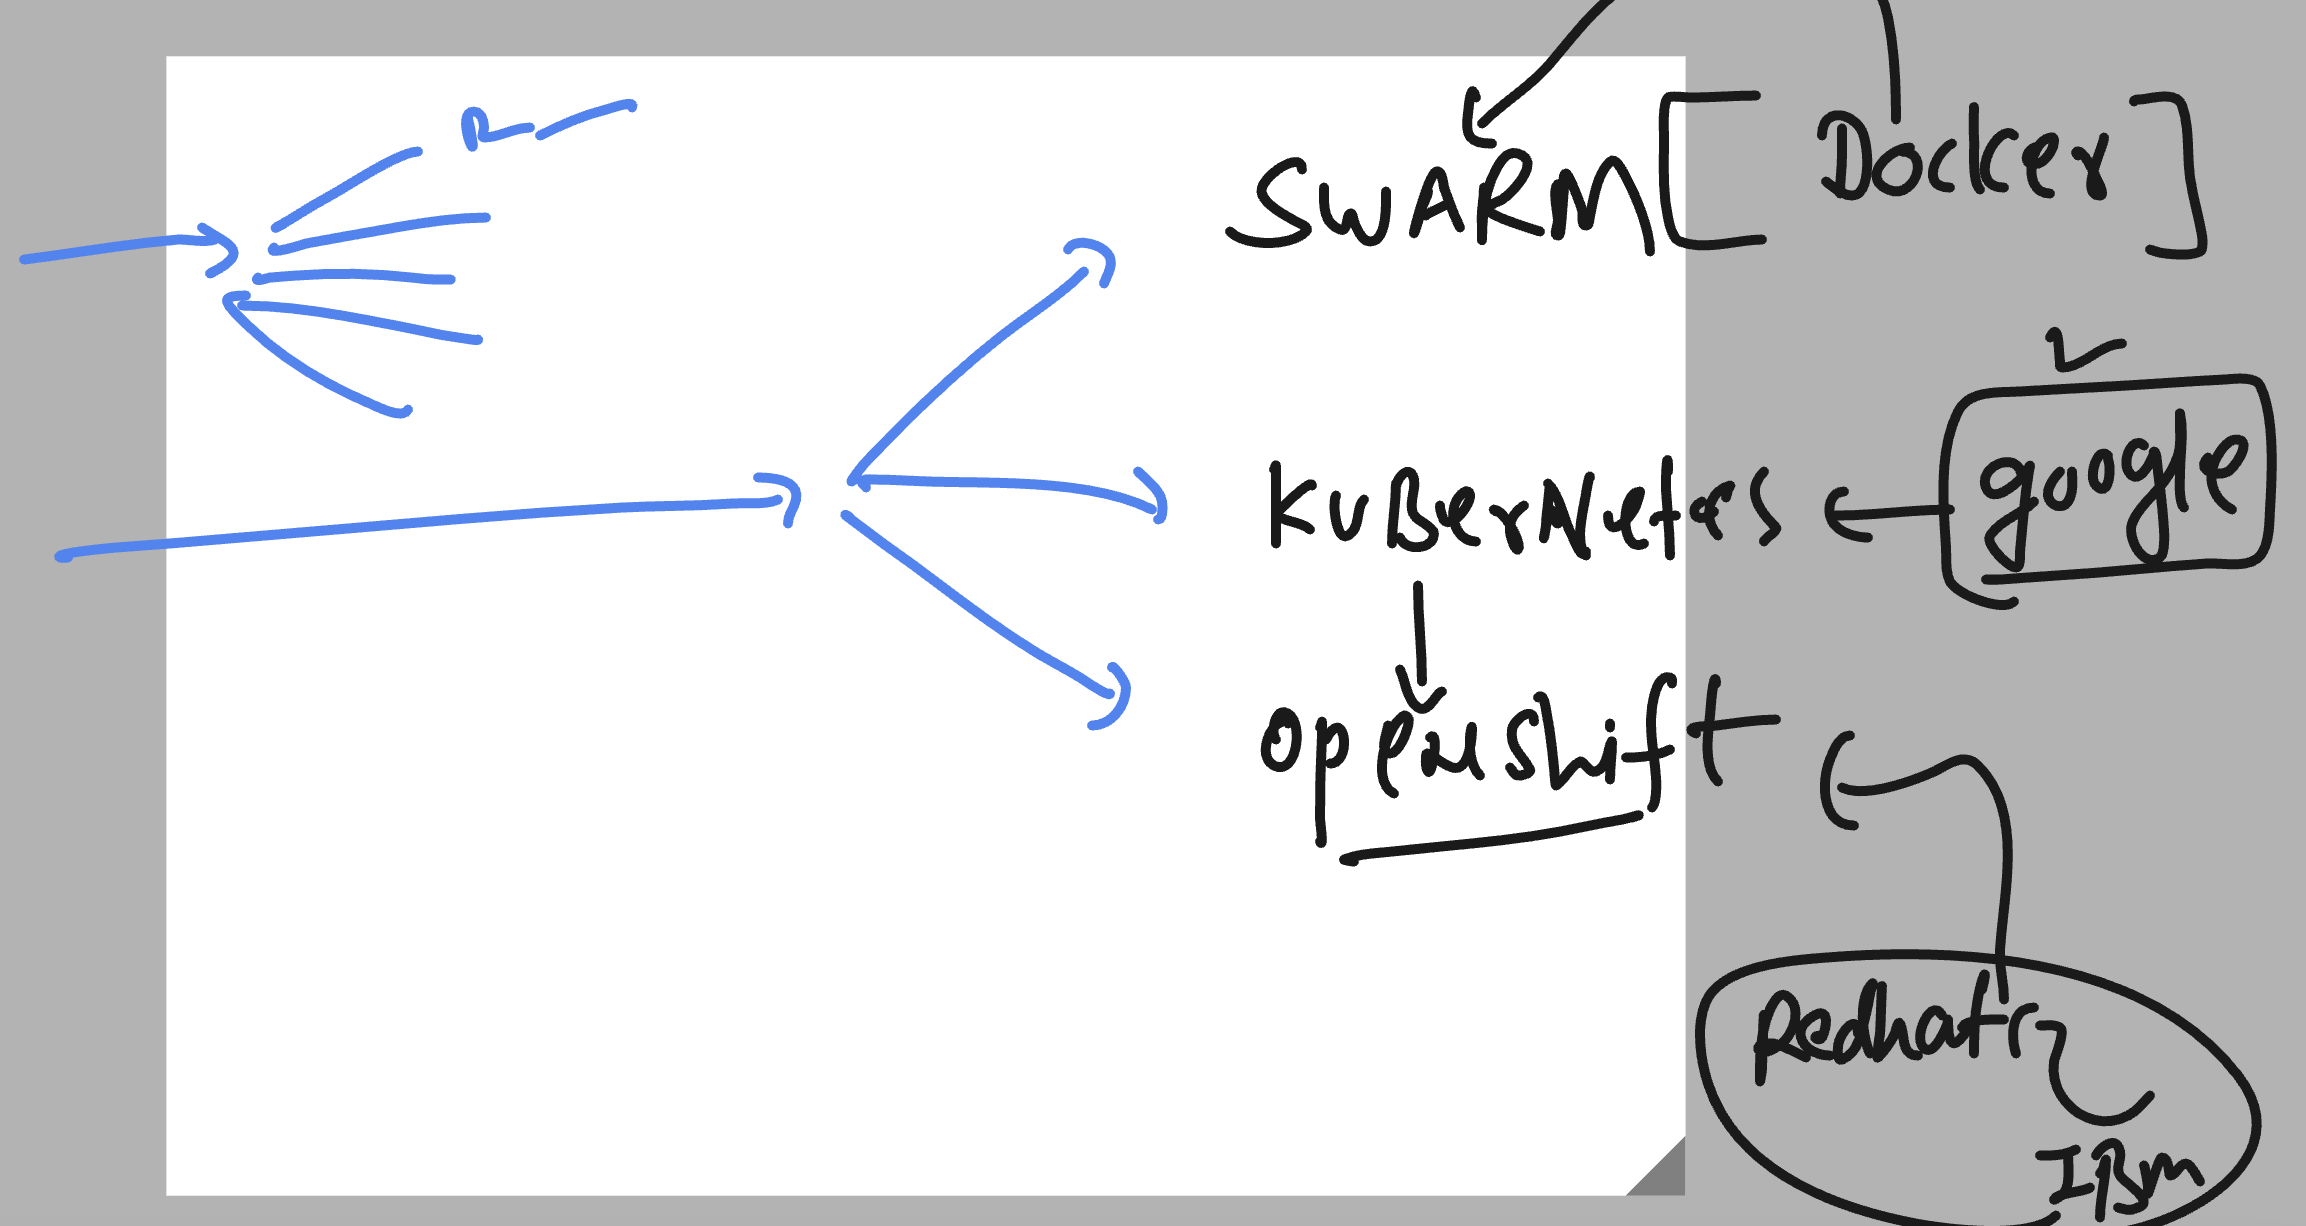 SWARM [ Docker ]
KuBerNetes
google
Openshift
Redhat
IBM